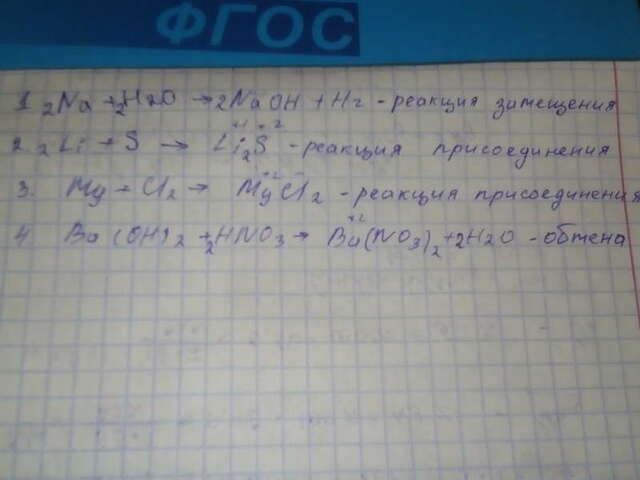 ФГОС
1. 2Na + 2H2O → 2NaOH + H2 - реакция замещения
+1 -2
2. 2Li + S → Li2S - реакция присоединения
3. Mg + Cl2 → MgCl2 - реакция присоединения
+2
4. Ba(OH)2 + 2HNO3 → Ba(NO3)2 + 2H2O - обмена